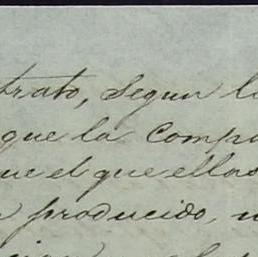 trato, segun l
que la Compa
que el que ellas
producido,